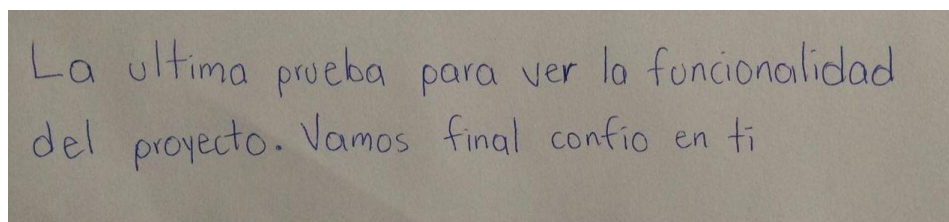 La ultima prueba para ver la funcionalidad
del proyecto. Vamos final confio en ti